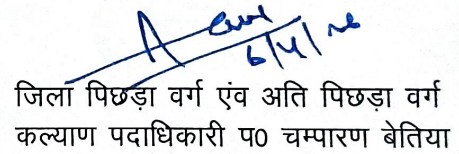 6/4/26
जिला पिछड़ा वर्ग एंव अति पिछड़ा वर्ग
कल्याण पदाधिकारी प0 चम्पारण बेतिया